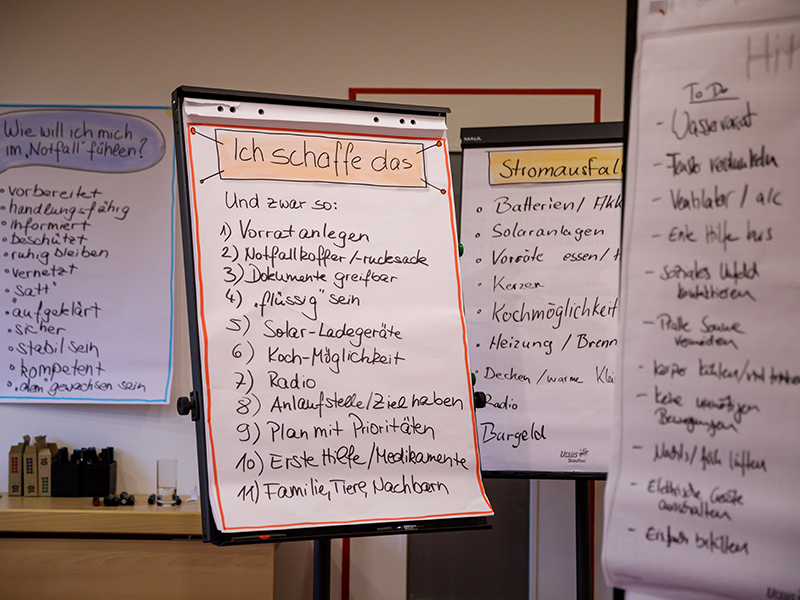 Wie will ich mich
im „Notfall" fühlen?
• vorbereitet
• handlungsfähig
• Informiert
• beschützt
• ruhig bleiben
• vernetzt
• satt
• aufgeklärt
• sicher
• stabil sein
• kompetent
• „dem" gewachsen sein
Ich schaffe das
Und zwar so:
1) Vorrat anlegen
2) Notfallkoffer/-rucksäcke
3) Dokumente greifbar
4) „flüssig" sein
5) Solar-Ladegeräte
6) Koch-Möglichkeit
7) Radio
8) Anlaufstelle/Ziel haben
9) Plan mit Prioritäten
10) Erste Hilfe/Medikamente
11) Familie, Tiere, Nachbarn
MAUL
Stromausfall
• Batterien/Akk
• Solaranlagen
• Vorräte essen/
• Kerzen
• Kochmöglichkeit
• Heizung/Brenn
• Decken/warme Klei
Radio
Bargeld
Hit
To Do
- Wasservorrat
- Fenster verdunkeln
- Ventilator/a/c
- Erste Hilfe
- soziales Umfeld
kontaktieren
- Pralle Sonne
vermeiden
- Körper kühlen/
- keine unnötigen
Bewegungen
- Nachts/früh lüften
- Elektrische Geräte
ausschalten
- Einfach